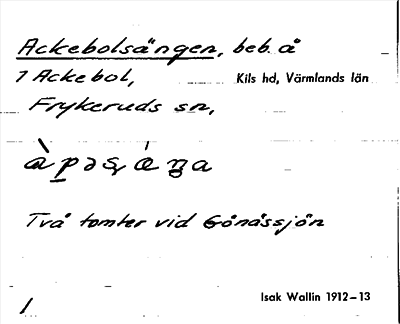 Ackebolsängen, beb. å
1 Ackebol, Kils hd, Värmlands län
Frykeruds sn,
Två tomter vid Gönässjön
Isak Wallin 1912–13
1